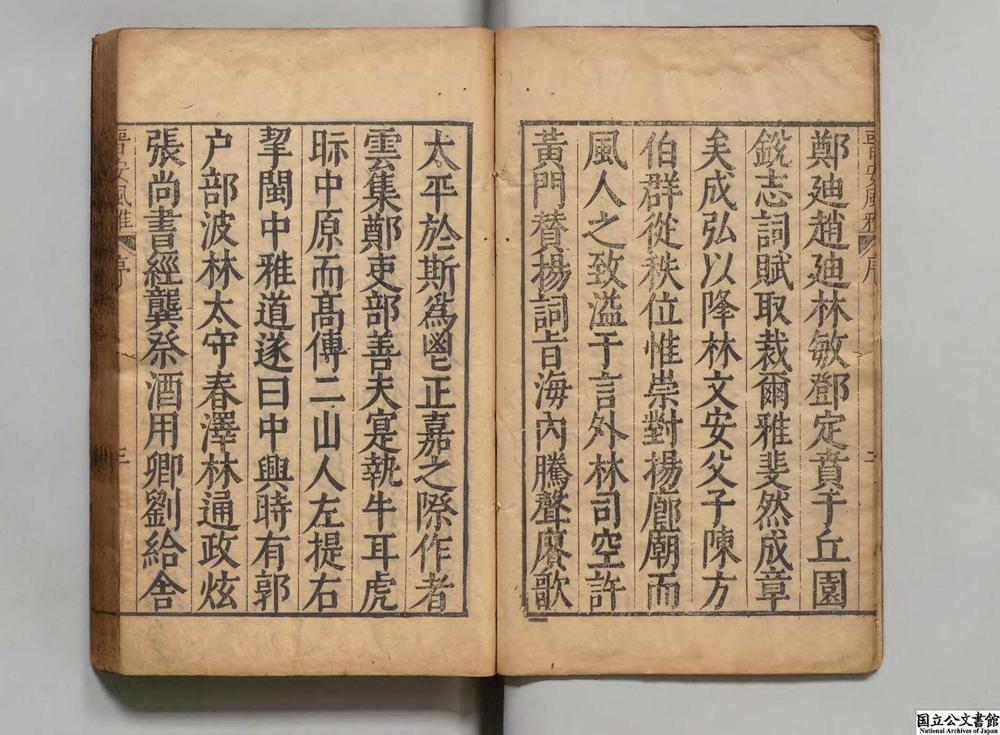 晉安風雅
序
二
鄭廸趙廸林敏鄧定賁于丘園
銳志詞賦取裁爾雅斐然成章
矣成弘以降林文安父子陳方
伯群從秩位惟崇對揚廊廟而
風人之致溢于言外林司空許
黃門賛揚詞旨海內騰聲賡歌
太平於斯為盛正嘉之際作者
雲集鄭吏部善夫寔執牛耳虎
眎中原而髙傅二山人左提右
挈閩中雅道遂曰中興時有郭
户部波林太守春澤林通政炫
張尚書經龔祭酒用卿劉給舍
晉安風雅
序
三
国立公文書館
National Archives of Japan